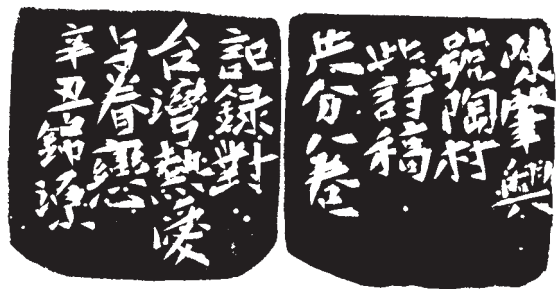 陳肇興
號陶村
此詩稿
共分八卷
記録對
台灣熱愛
与眷戀
辛丑錦源